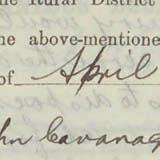 he Rural District
he above-mentione
of April
hn Cavanag